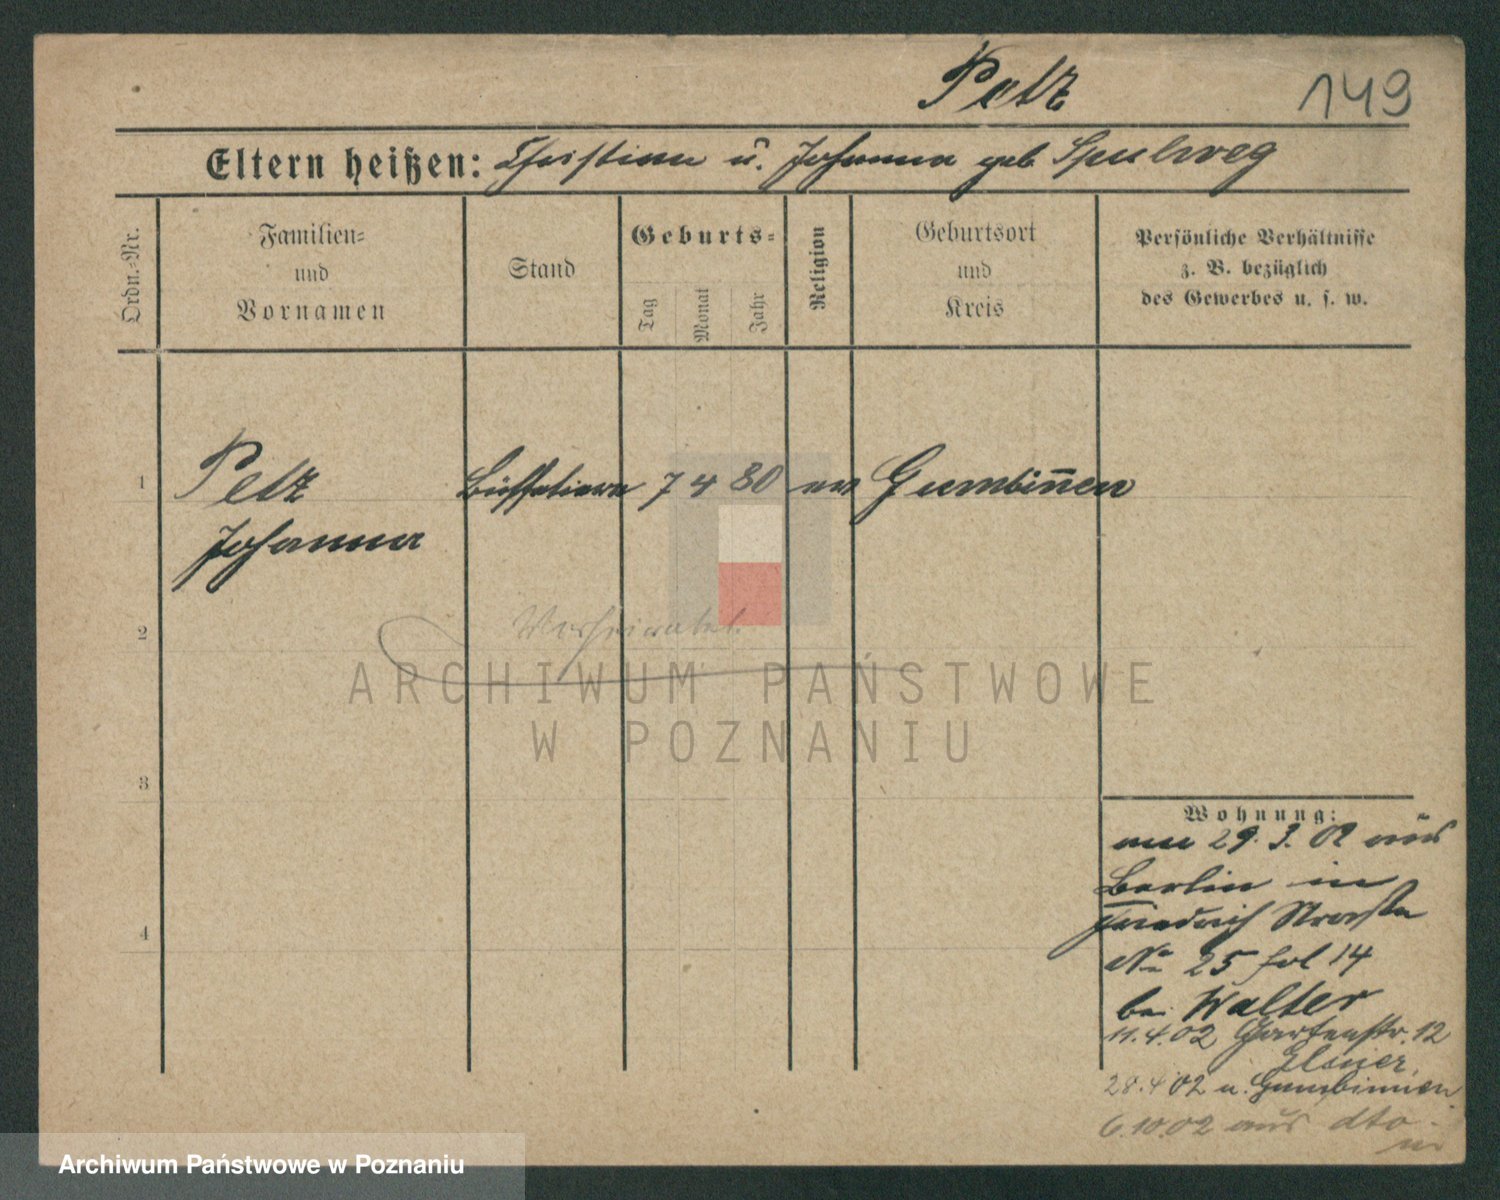 Petz
149
Eltern heißen: Christian u. Johanna geb. Spulweg
Ordn.-Nr.
Familien-
und
Vornamen
Stand
Geburts-
Tag
Monat
Jahr
Religion
Geburtsort
und
Kreis
Persönliche Verhältnisse
z. B. bezüglich
des Gewerbes u. s. w.
1
Petz
Johanna
Büffetiere
7 4 80
ev
Gumbin̄en
2
Verheiratet.
3
4
ARCHIWUM PAŃSTWOWE
W POZNANIU
Wohnung:
29.3.02 aus
Berlin in
Friedrich Straße
No 25 hpl 14
bei Walter
11.4.02 Gartenstr. 12
28.4.02 n. Gumbinnen
6.10.02 aus dto
in
Archiwum Państwowe w Poznaniu